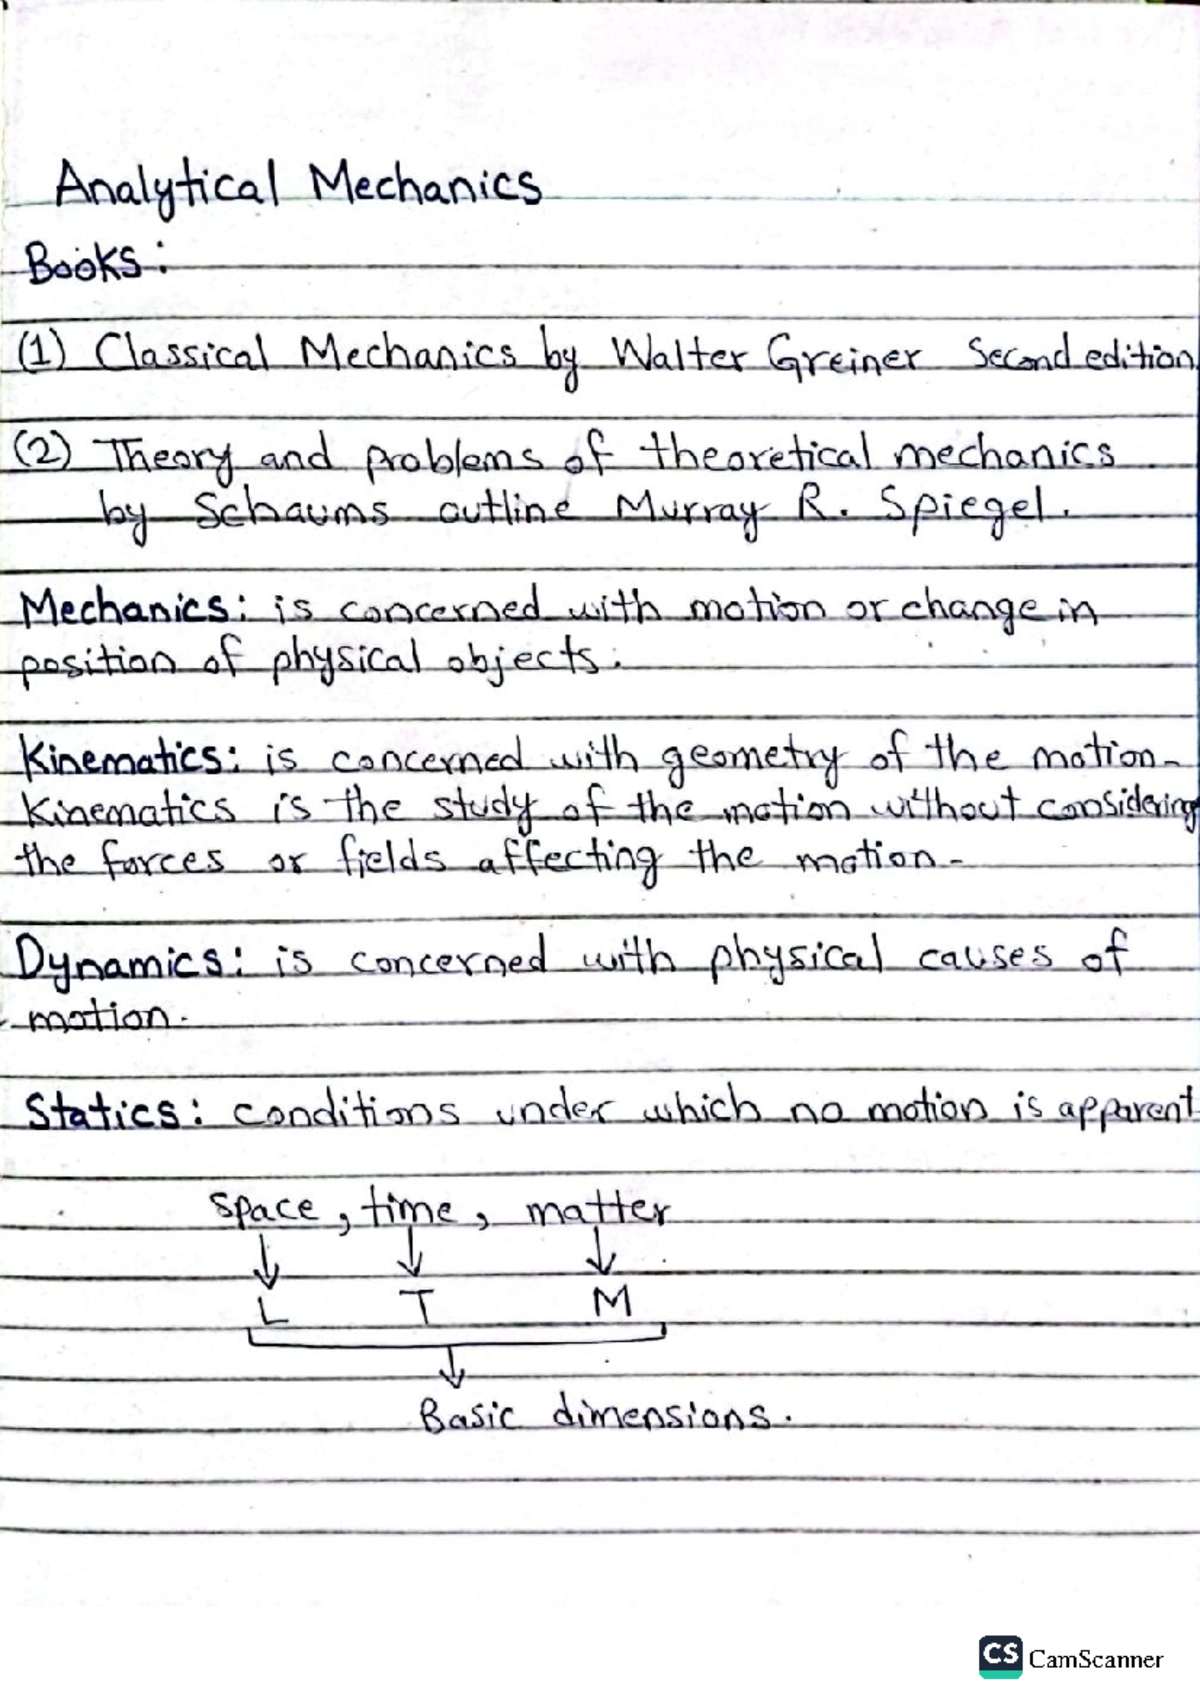 Analytical Mechanics
Books:
(1) Classical Mechanics by Walter Greiner Second edition
(2) Theory and problems of theoretical mechanics
by Schaums outline Murray R. Spiegel.
Mechanics: is concerned with motion or change in
position of physical objects.
Kinematics: is concerned with geometry of the motion.
Kinematics is the study of the motion without considering
the forces or fields affecting the motion.
Dynamics: is concerned with physical causes of
motion.
Statics: conditions under which no motion is apparent
space, time, matter
L T M
Basic dimensions.
CS CamScanner